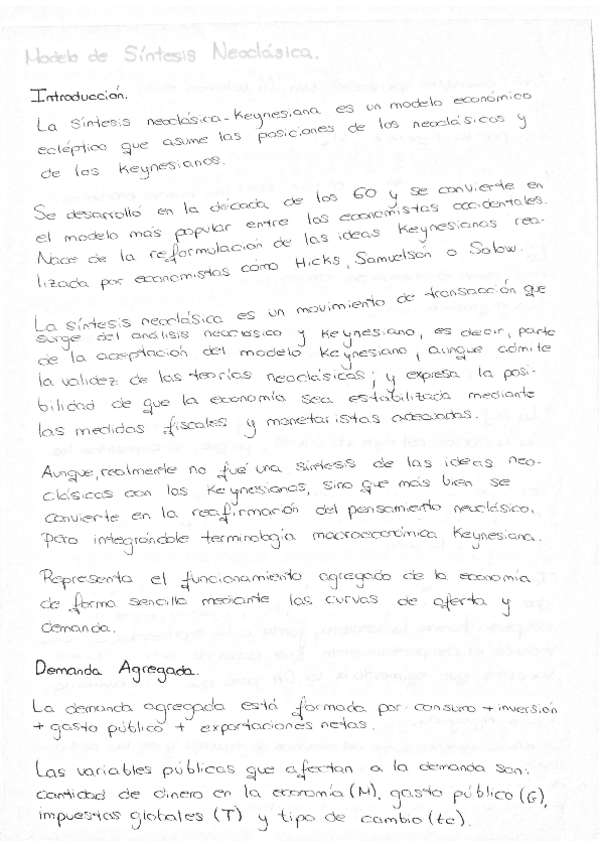 Modelo de Síntesis Neoclásica.
Introducción.
La síntesis neoclásica-Keynesiana es un modelo económico
ecléptico que asume las posiciones de los neoclásicos y
de los Keynesianos.
Se desarrolló en la década de los 60 y se convierte en
el modelo más popular entre los economistas occidentales.
Nace de la reformulación de las ideas Keynesianas rea-
lizada por economistas como Hicks, Samuelson o Solow.
La síntesis neoclásica es un movimiento de transacción que
surge del análisis neoclásico y Keynesiano, es decir, parte
de la aceptación del modelo Keynesiano, aunque admite
la validez de las teorías neoclásicas; y expresa la posi-
bilidad de que la economía sea estabilizada mediante
las medidas fiscales y monetaristas adecuadas.
Aunque, realmente no fué una síntesis de las ideas neo-
clásicas con las Keynesianas, sino que más bien se
convierte en la reafirmación del pensamiento neoclásico,
pero integrándole terminología macroeconómica Keynesiana.
Representa el funcionamiento agregado de la economía
de forma sencilla mediante las curvas de oferta y
demanda.
Demanda Agregada.
La demanda agregada está formada por: consumo + inversión
+ gasto público + exportaciones netas.
Las variables públicas que afectan a la demanda son:
cantidad de dinero en la economía (M), gasto público (G),
impuestos globales (T) y tipo de cambio (tc).